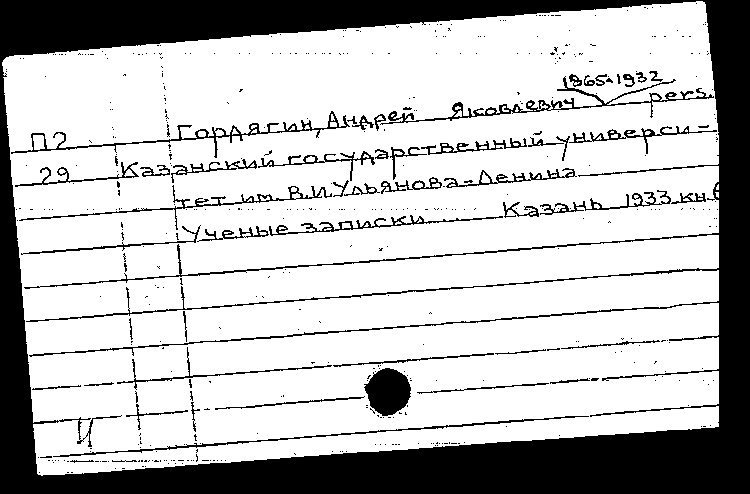 1865-1932
П2 Гордягин, Андрей Яковлевич pers.
29 Казанский государственный универси-
тет им. В.И.Ульянова-Ленина
Ученые записки.... Казань 1933 кн.6
И